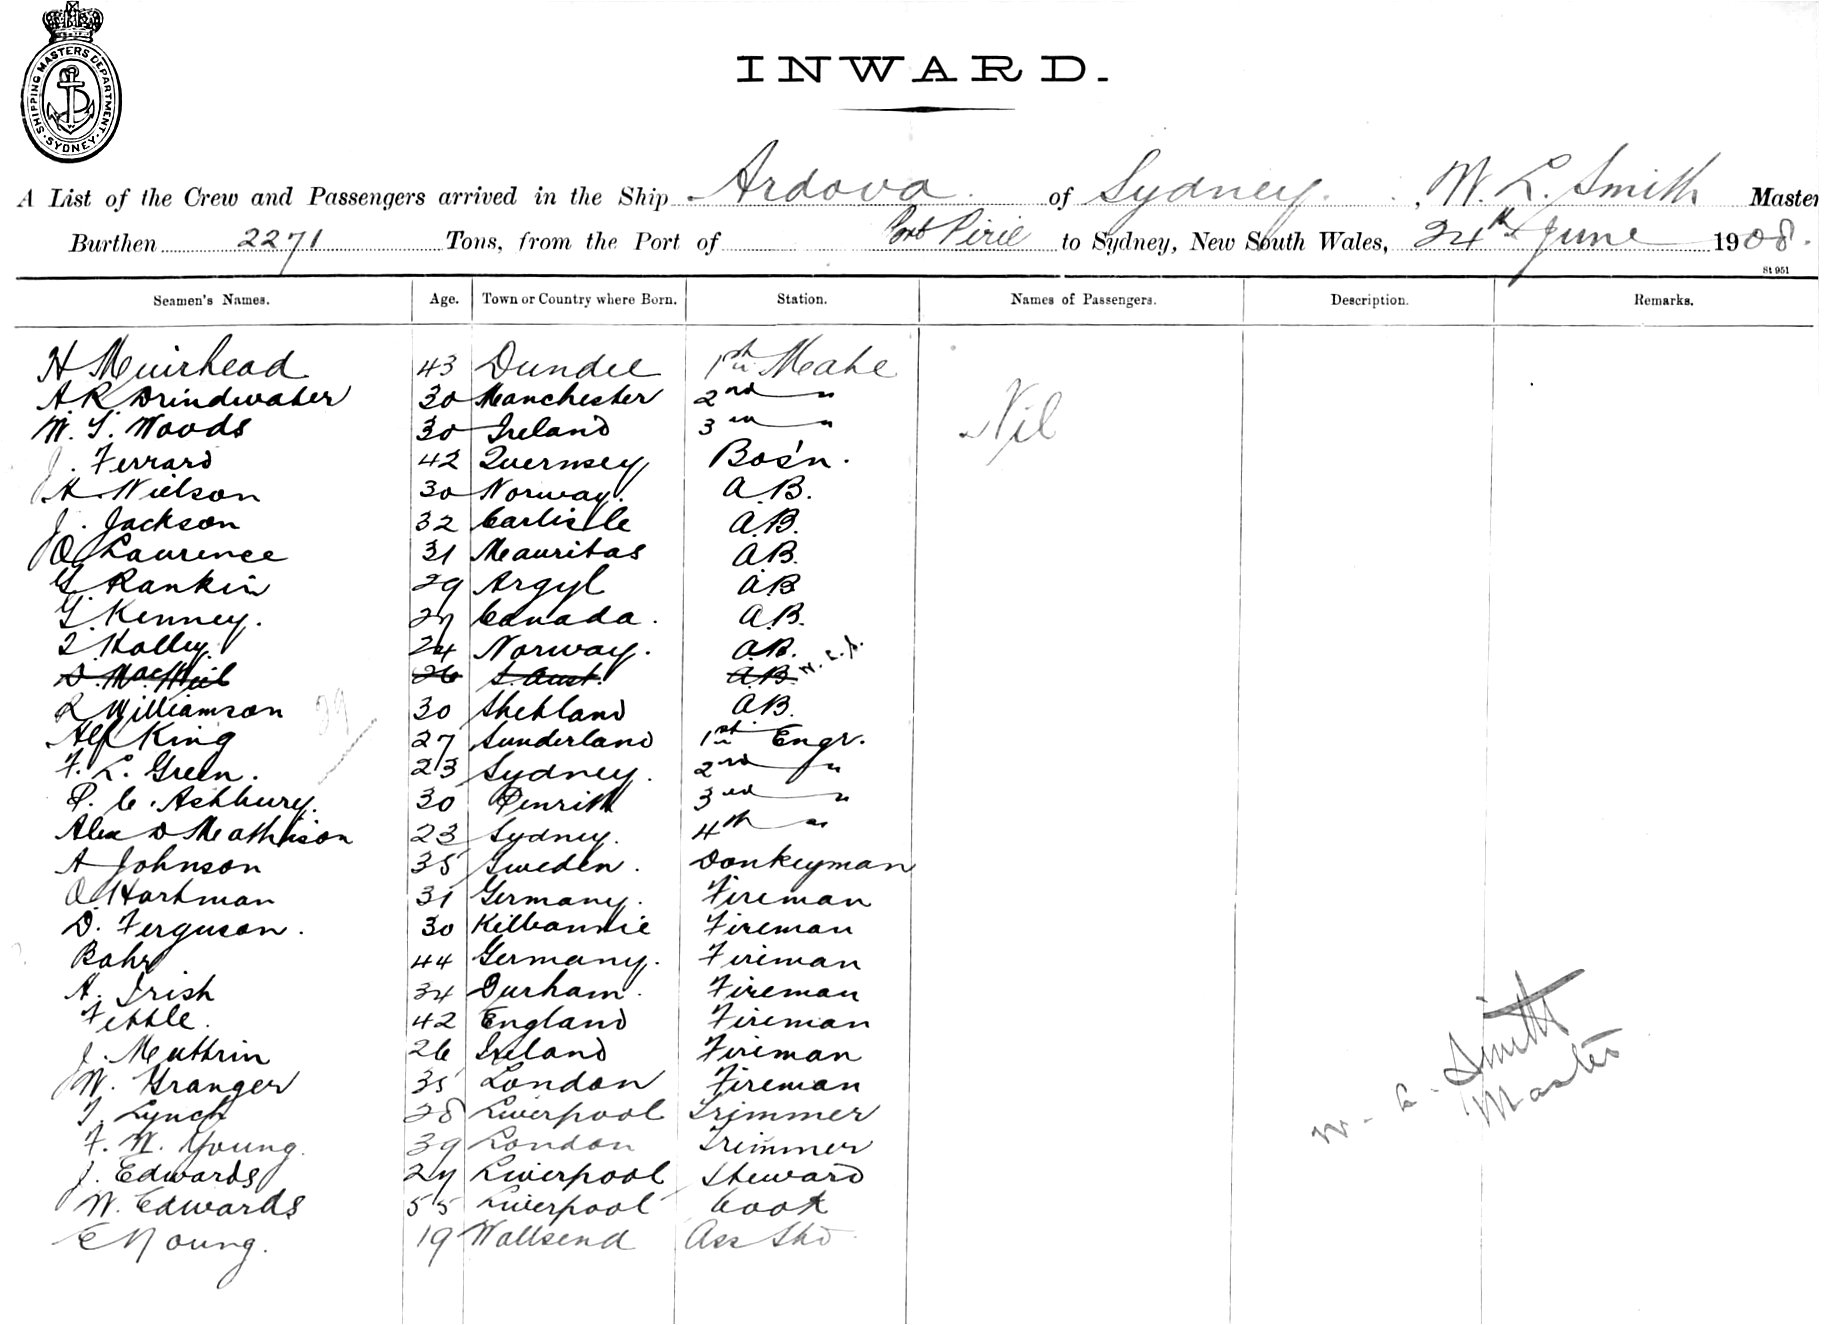 SHIPPING MASTERS DEPARTMENT. SYDNEY
INWARD.
A List of the Crew and Passengers arrived in the Ship Ardova of Sydney, W. L. Smith Master
Burthen 2271 Tons, from the Port of Port Pirie to Sydney, New South Wales, 24th June 1908.
St 951
Seamen's Names. Age. Town or Country where Born. Station. Names of Passengers. Description. Remarks.
H Muirhead 43 Dundee 1st Mate
A. R Drindwater 30 Manchester 2nd "
W. S. Woods 30 Ireland 3rd "
Nil
J. Ferrard 42 Guernsey Bos'n.
H Nielson 30 Norway. A.B.
J. Jackson 32 Carlisle A.B.
O Laurence 31 Mauritas A.B.
G Rankin 29 Argyl A.B
G. Kenney. 27 Canada. A.B.
T. Kolley. 24 Norway. A.B.
D. MacNeil 26 S. Aust. A.B. W.L.S.
R Williamson 30 Shetland A.B.
29
Alf King 27 Sunderland 1st Engr.
F. L. Green. 23 Sydney. 2nd "
P. C. Ashbury. 30 Penrith 3rd "
Alex D Mathison 23 Sydney. 4th "
A Johnson 35 Sweden. Donkeyman
O Hartman 31 Germany. Fireman
D. Ferguson. 30 Kilbannie Fireman
Bahr 44 Germany. Fireman
A. Irish 34 Durham. Fireman
Tebble. 42 England Fireman
J. Muttrin 26 Ireland Fireman
W. Granger 35 London Fireman
T. Lynch 28 Liverpool Trimmer
F. W. Young. 39 London Trimmer
J. Edwards 27 Liverpool Steward
W. Edwards 55 Liverpool Cook
E Young. 19 Wallsend Ass Std
W. L. Smith
Master